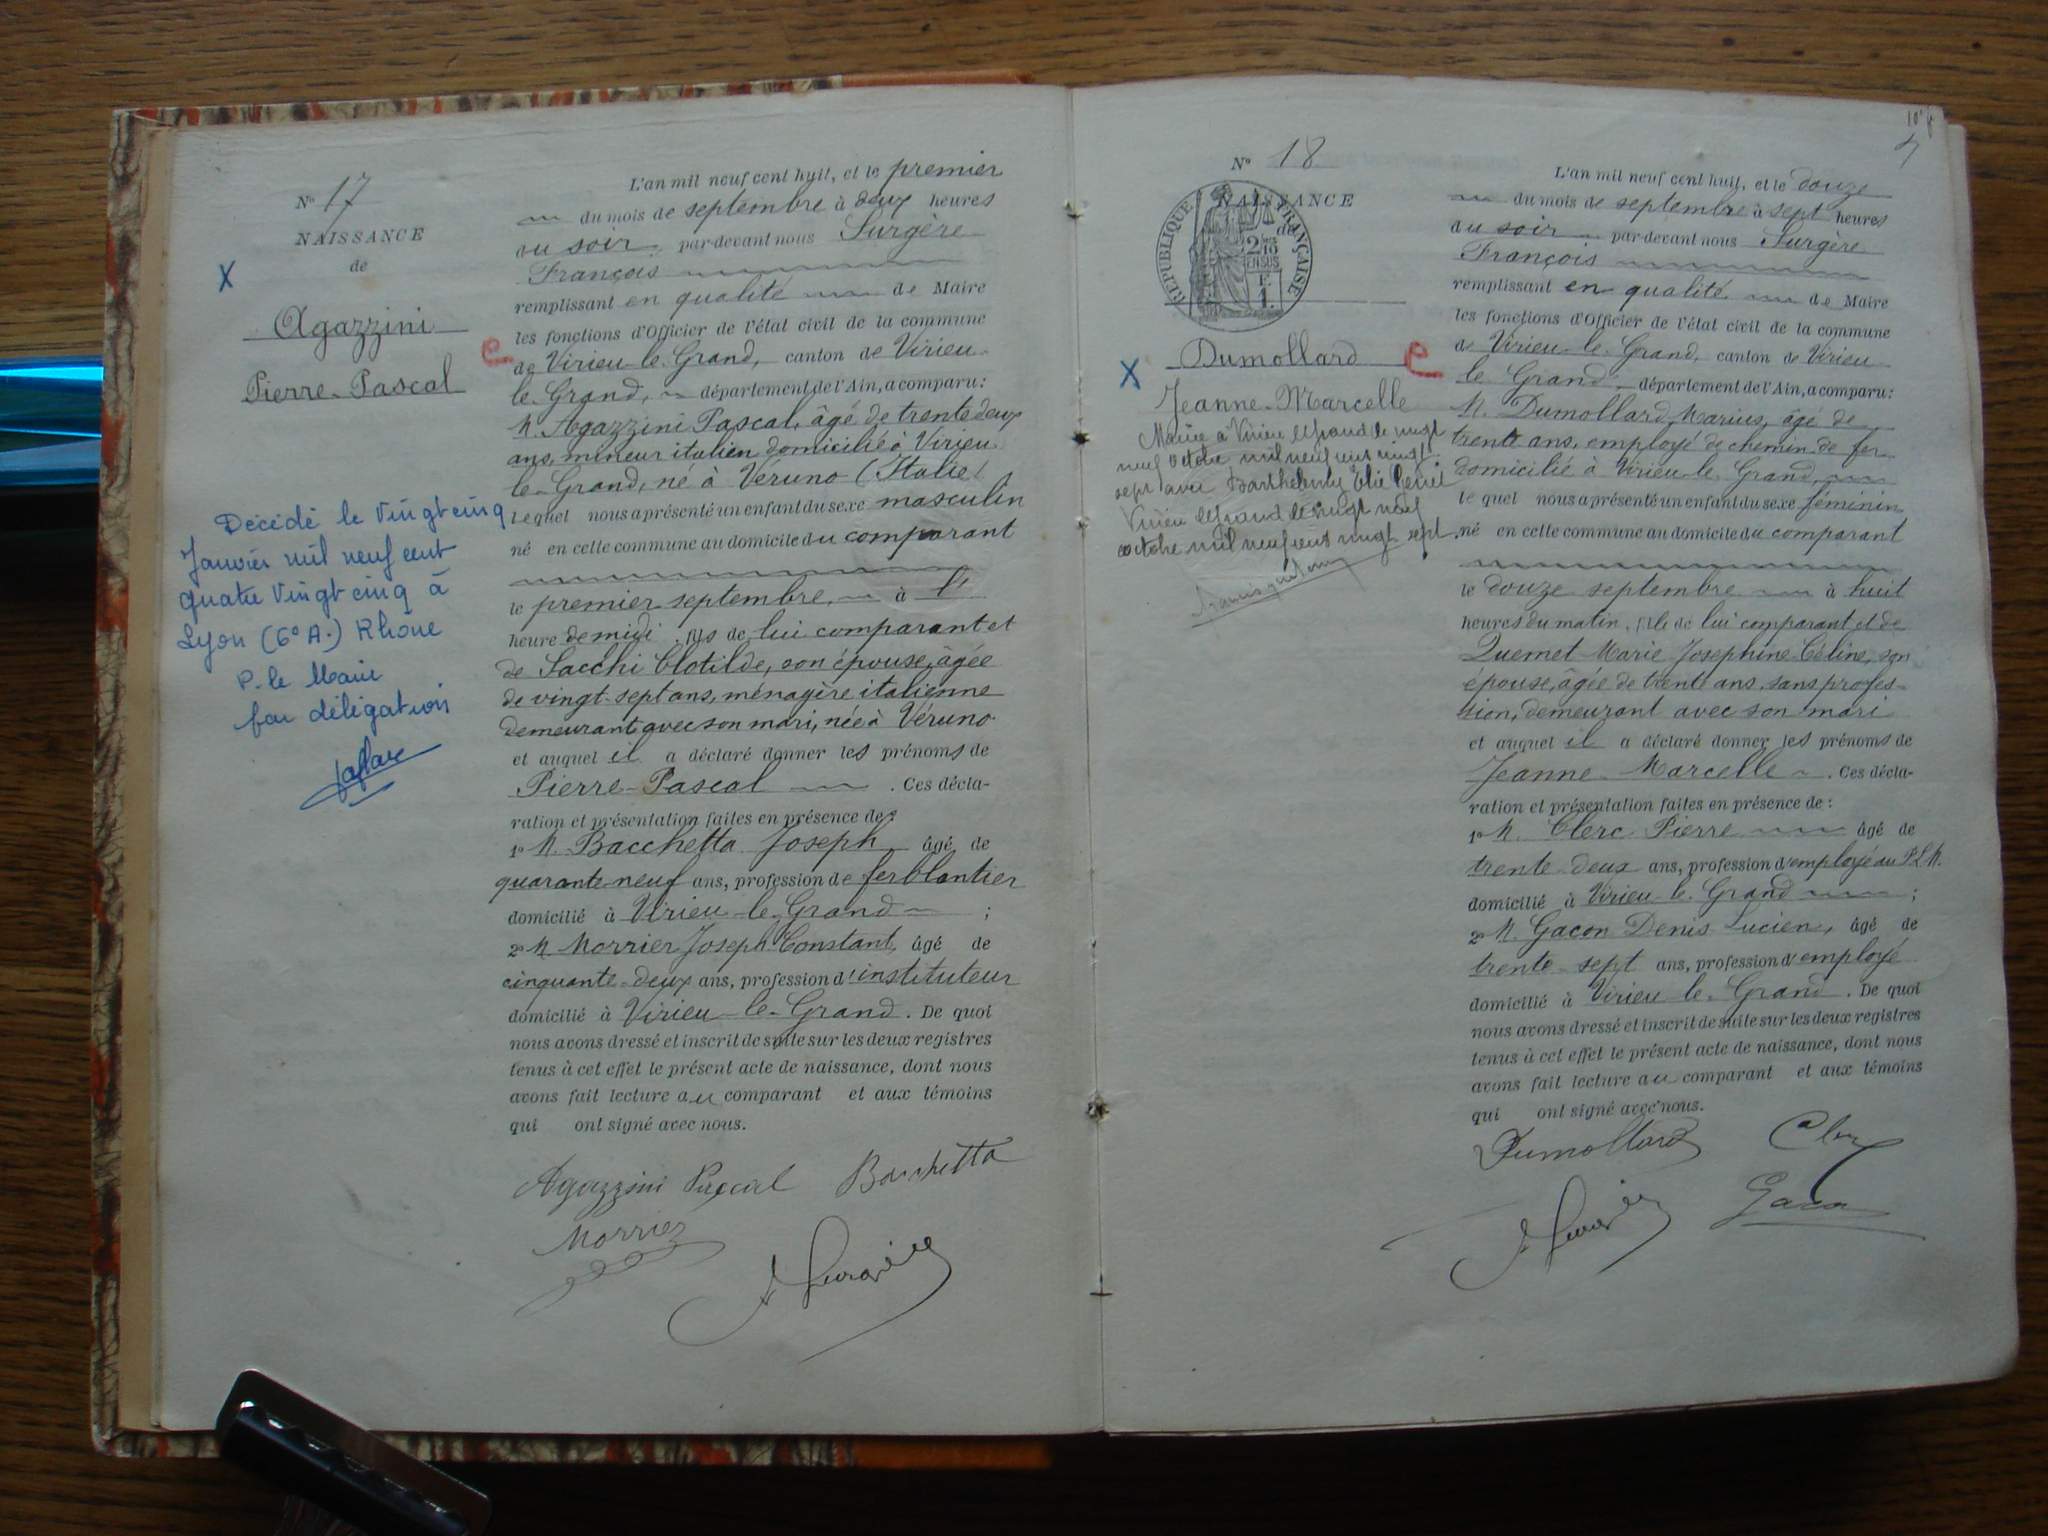 N° 17
NAISSANCE
de
Agazzini
Pierre-Pascal
Décédé le vingt cinq
Janvier mil neuf cent
quatre vingt cinq à
Lyon (6e A.) Rhône
P. le Maire
par délégation
L'an mil neuf cent huit, et le premier
du mois de septembre à deux heures
du soir, par-devant nous Surgère
François
remplissant en qualité de Maire
les fonctions d'Officier de l'état civil de la commune
de Virieu-le-Grand, canton de Virieu-
le-Grand, département de l'Ain, a comparu:
M. Agazzini Pascal, âgé de trente deux
ans, mineur italien domicilié à Virieu-
le-Grand, né à Véruno (Italie)
Lequel nous a présenté un enfant du sexe masculin
né en cette commune au domicile du comparant
le premier septembre, à l'
heure de midi, fils de lui comparant et
de Sacchi Clotilde, son épouse, âgée
de vingt-sept ans, ménagère italienne
demeurant avec son mari, née à Véruno
et auquel il a déclaré donner les prénoms de
Pierre-Pascal. Ces décla-
ration et présentation faites en présence de:
1° M. Bacchetta Joseph, âgé de
quarante-neuf ans, profession de ferblantier
domicilié à Virieu-le-Grand ;
2° M. Morrier Joseph Constant, âgé de
cinquante-deux ans, profession d'instituteur
domicilié à Virieu-le-Grand. De quoi
nous avons dressé et inscrit de suite sur les deux registres
tenus à cet effet le présent acte de naissance, dont nous
avons fait lecture au comparant et aux témoins
qui ont signé avec nous.
Agazzini Pascal Bacchetta
Morrier
Surgère
10e f
N° 18
NAISSANCE
de
RÉPUBLIQUE FRANÇAISE
2/10
EN SUS
F.
1.
Dumollard
Jeanne-Marcelle
Mariée à Virieu le Grand le vingt
neuf octobre mil neuf cent vingt
sept avec Barthélemy Elie
Virieu le Grand le vingt neuf
octobre mil neuf cent vingt sept
L'an mil neuf cent huit, et le douze
du mois de septembre à sept heures
du soir par-devant nous Surgère
François
remplissant en qualité de Maire
les fonctions d'Officier de l'état civil de la commune
de Virieu-le-Grand, canton de Virieu-
le-Grand, département de l'Ain, a comparu:
M. Dumollard Marius, âgé de
trente ans, employé de chemin de fer
domicilié à Virieu-le-Grand,
lequel nous a présenté un enfant du sexe féminin
né en cette commune au domicile du comparant
le douze septembre à huit
heures du matin, fille de lui comparant et de
Quemet Marie Josephine-Céline, son
épouse, âgée de trente ans, sans profes-
sion, demeurant avec son mari
et auquel il a déclaré donner les prénoms de
Jeanne-Marcelle. Ces décla-
ration et présentation faites en présence de:
1° M. Clerc Pierre âgé de
trente deux ans, profession d'employé au P.L.M.
domicilié à Virieu-le-Grand ;
2° M. Gacon Denis Lucien, âgé de
trente-sept ans, profession d'employé
domicilié à Virieu-le-Grand. De quoi
nous avons dressé et inscrit de suite sur les deux registres
tenus à cet effet le présent acte de naissance, dont nous
avons fait lecture au comparant et aux témoins
qui ont signé avec nous.
Dumollard Clerc
Surgère Gacon